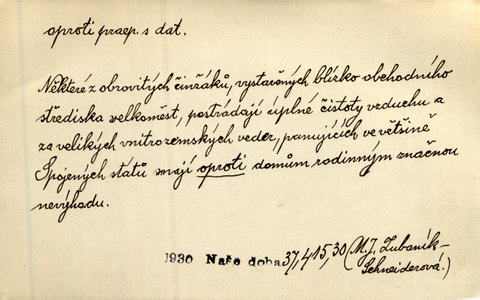 oproti praep. s dat.
Některé z obrovitých činžáků, vystavěných blízko obchodního
střediska velkoměst, postrádají úplné čistoty vzduchu a
za velikých vnitrozemských veder, panujících ve většině
Spojených států mají oproti domům rodinným značnou
nevýhodu.
1930 Naše doba 37,415,30 (M. I. Zubaník-
Schneiderová.)